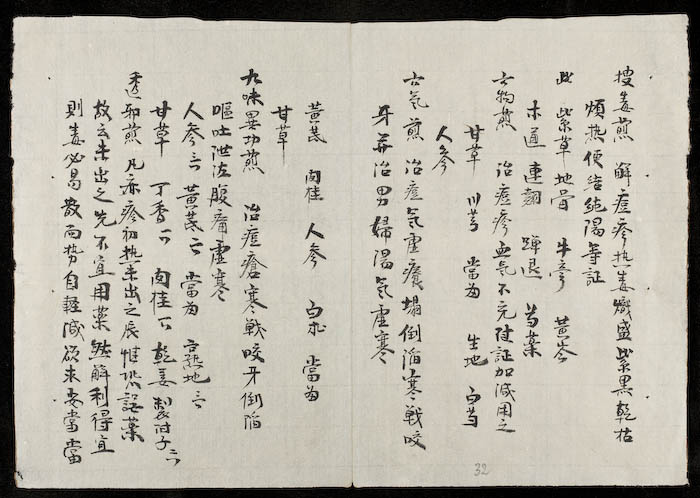 搜毒煎 解痘疹热毒熾盛紫黑乾枯
煩热便结纯陽等証
此 紫草 地骨 牛旁 黃岑
木通 連翹 蟬退 芍藥
六物煎 治痘疹血气不充陡証加減用之
甘草 川芎 當歸 生地 白芍
人參
六气煎 治痘气虛癢塌倒陷寒戦咬
牙并治男婦陽气虛寒
黃芪 肉桂 人參 白朮 當歸
甘草
九味異功煎 治痘瘡寒戦咬牙倒陷
嘔吐泄泻腹痛虛寒
人參三 黃芪三 當歸 六 熟地三
甘草 丁香 肉桂 乾姜 製附子二
透邪煎 凡痳疹初热未出之辰惟恐誤藥
故云未出之先不宜用藥然解利得宜
則毒必易散而势自輕減欲未要當當
32